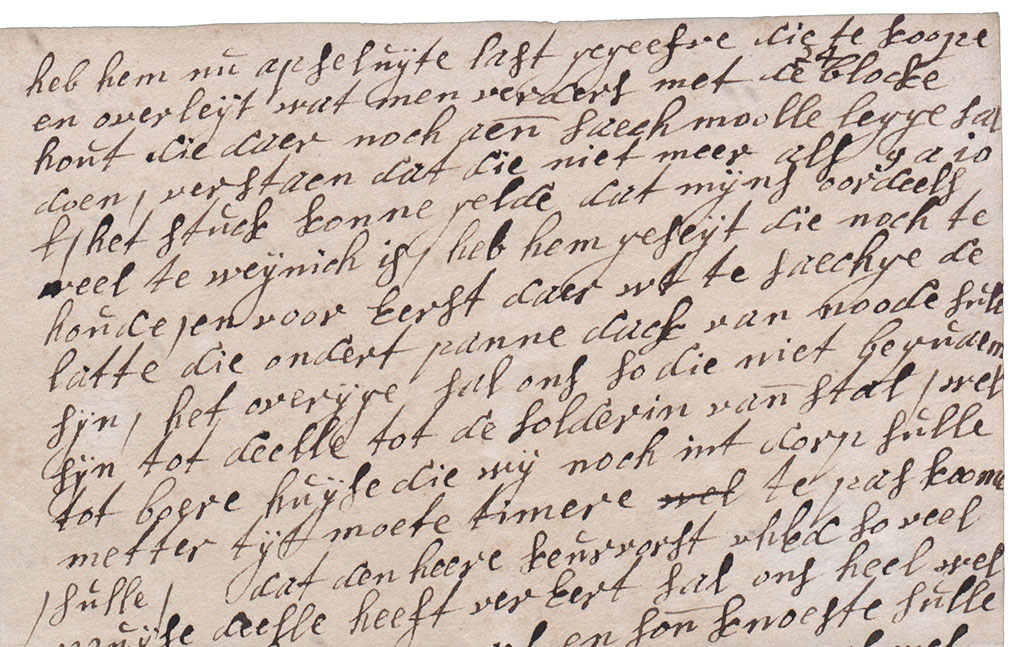 heb hem nu apseluyte last gegeefve die te koope
en overleyt wat men verders met de 34 blocke
hout die daer noch aen saech moolle legge sal
doen, verstaen dat die niet meer als 9 a 10
ß het stuck konne gelde dat mijns oordeels
veel te weynich is, heb hem geseyt die noch te
houde, en voor eerst daer wt te saechge de
latte die ondert panne dack van noode sulle
sijn, het overyge sal ons so die niet
sijn tot deelle tot de solderin van stal, wel
tot boere huyse die wij noch int dorp sulle
metter tijt moete timere wel te pas koome
sulle, dat den heere keurvorst vhed so veel
deelle heeft vereert sal ons heel wel
en son knoeste sulle